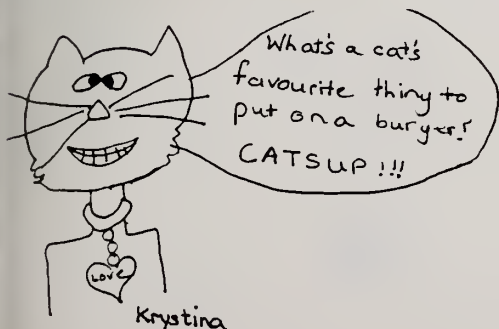 What's a cat's
favourite thing to
put on a burger?
CATSUP !!!
LOVE
Krystina